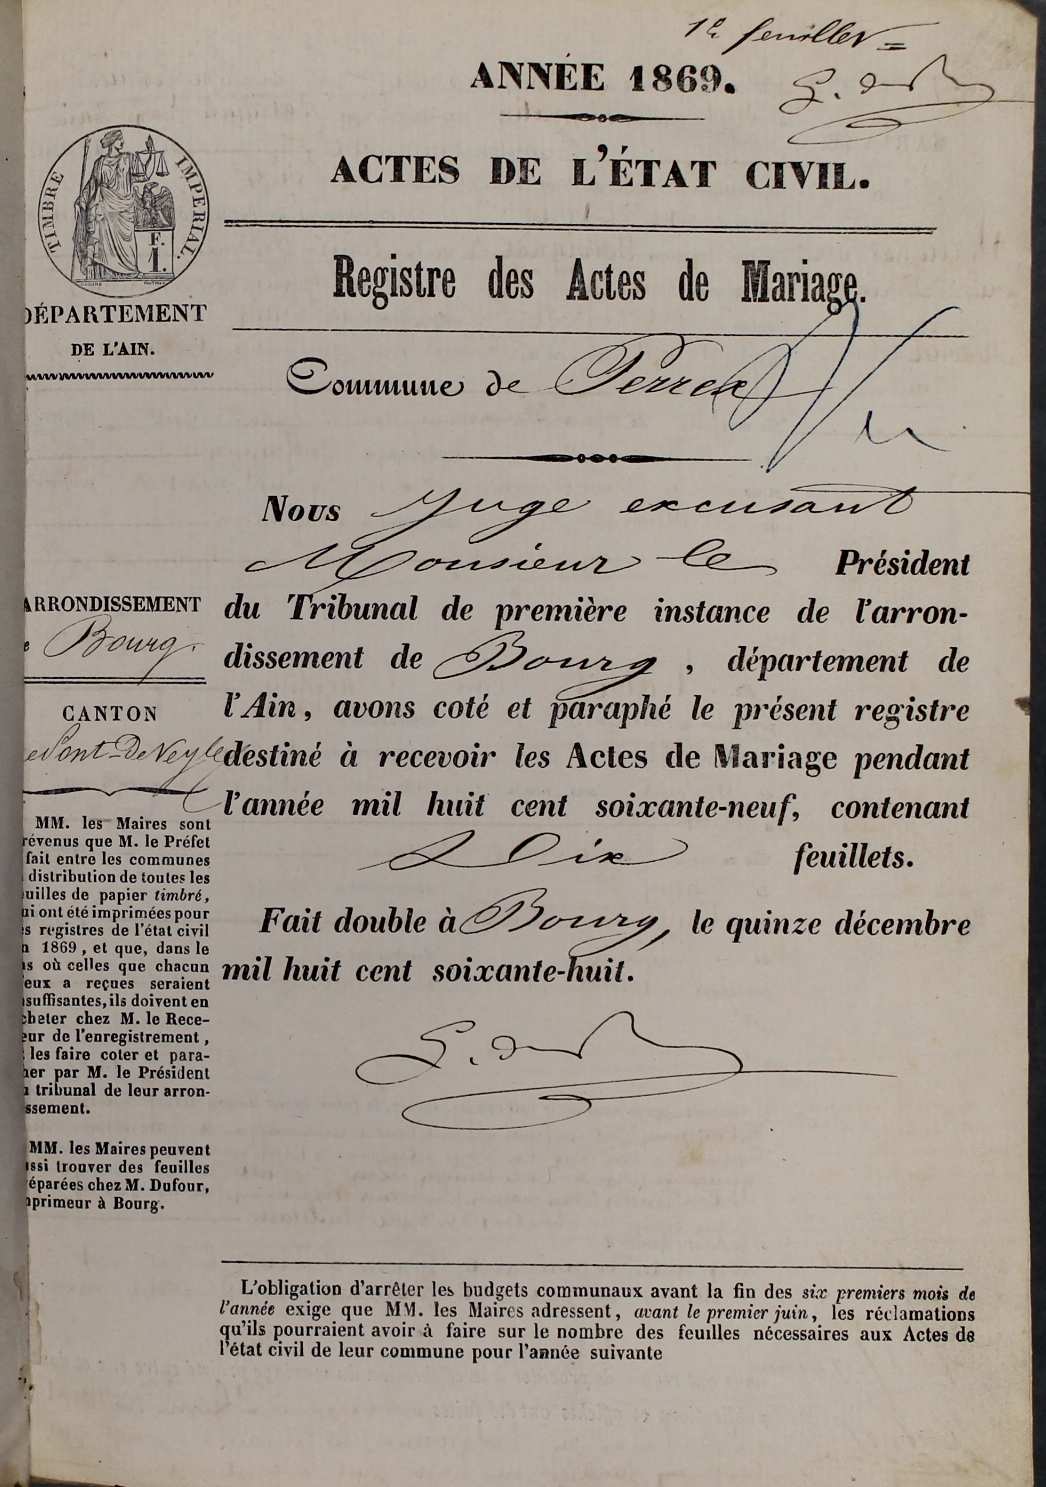 1er feuillet
ANNÉE 1869.
ACTES DE L'ÉTAT CIVIL.
TIMBRE IMPERIAL.
F.
1.
Registre des Actes de Mariage.
DÉPARTEMENT
DE L'AIN.
Commune de Perrex
Vu
Nous Juge excusant
Monsieur le Président
du Tribunal de première instance de l'arron-
dissement de Bourg, département de
l'Ain, avons coté et paraphé le présent registre
destiné à recevoir les Actes de Mariage pendant
l'année mil huit cent soixante-neuf, contenant
Dix feuillets.
Fait double à Bourg, le quinze décembre
mil huit cent soixante-huit.
ARRONDISSEMENT
e Bourg.
CANTON
e Pont-De-Veyle
MM. les Maires sont
révenus que M. le Préfet
fait entre les communes
distribution de toutes les
uilles de papier timbré,
ui ont été imprimées pour
s registres de l'état civil
n 1869, et que, dans le
s où celles que chacun
eux a reçues seraient
suffisantes, ils doivent en
cheter chez M. le Rece-
eur de l'enregistrement,
les faire coter et para-
her par M. le Président
u tribunal de leur arron-
ssement.
MM. les Maires peuvent
ussi trouver des feuilles
réparées chez M. Dufour,
mprimeur à Bourg.
L'obligation d'arrêter les budgets communaux avant la fin des six premiers mois de
l'année exige que MM. les Maires adressent, avant le premier juin, les réclamations
qu'ils pourraient avoir à faire sur le nombre des feuilles nécessaires aux Actes de
l'état civil de leur commune pour l'année suivante